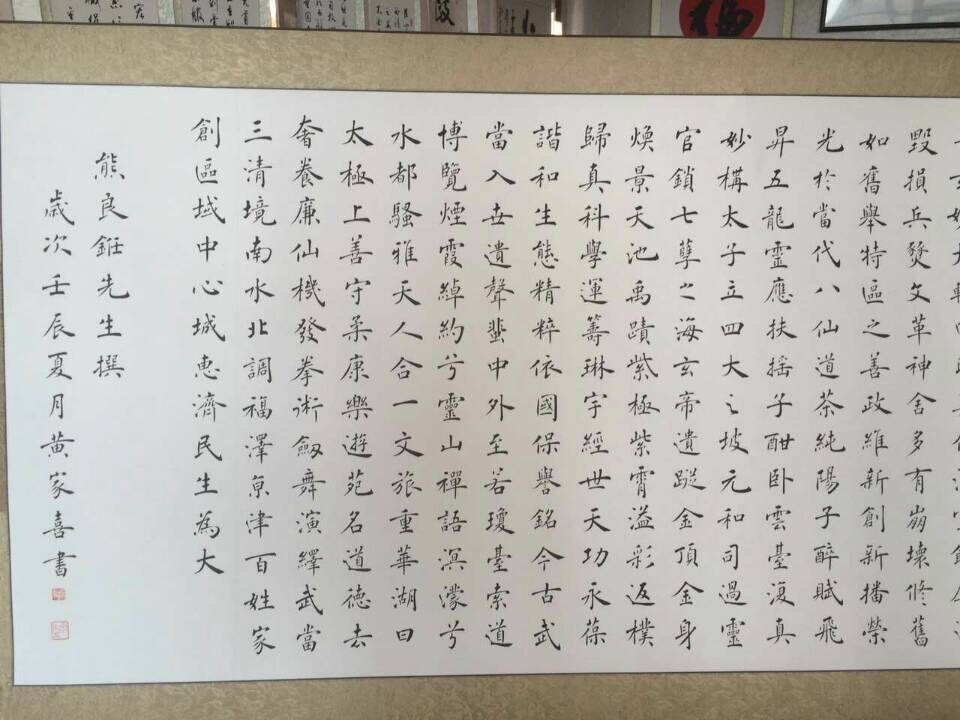 毀損兵燹文革神舍多有崩壞修舊
如舊舉特區之善政維新創新播榮
光於當代八仙道茶純陽子醉賦飛
昇五龍靈應扶搖子酣卧雲臺復真
妙構太子立四大之坡元和司過靈
官鎖七孽之海玄帝遺蹤金頂金身
煥景天池禹蹟紫極紫霄溢彩返樸
歸真科學運籌琳宇經世天功永葆
諧和生態精粹依國保譽銘今古武
當入世遺聲蜚中外至若瓊臺索道
博覽煙霞綽約兮靈山禪語溟濛兮
水都騷雅天人合一文旅重華湖曰
太極上善守柔康樂遊苑名道德去
奢養廉仙機發拳術劔舞演繹武當
三清境南水北調福澤京津百姓家
創區域中心城惠濟民生為大
熊良先生撰
歲次壬辰夏月黄家喜書